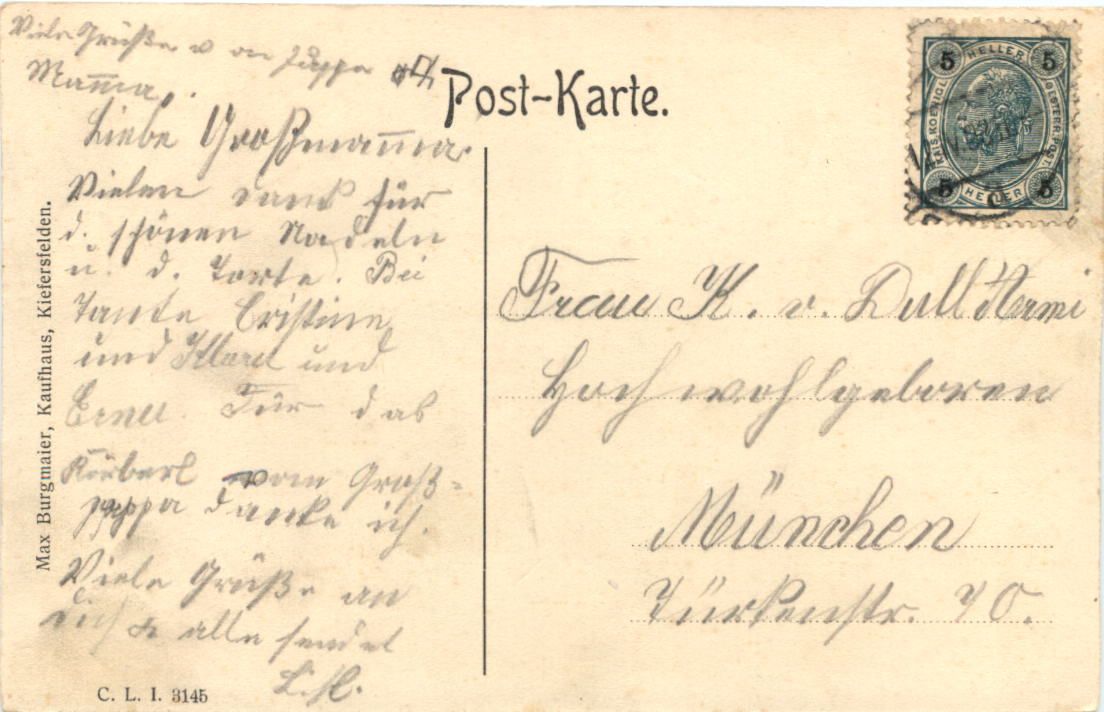 Viele Grüße v on Pappa
Mamma.
Post-Karte.
Liebe Großmamma.
Vielen dank für
d. schönen Nadeln
u. d. Torte. Bei
Tante Cristine
und Klara und
Erna. Für das
Körberl vom Groß=
pappa danke ich.
Viele Grüße an
dich & alle sendet
Lisl.
C. L. I. 3145
Max Burgmaier, Kaufhaus, Kiefersfelden.
5 HELLER 5
KAIS. KOENIGL. OESTERR. POST.
5 HELLER 5
Frau K. v.
Hochwohlgeboren
München
Türkenstr. 70.